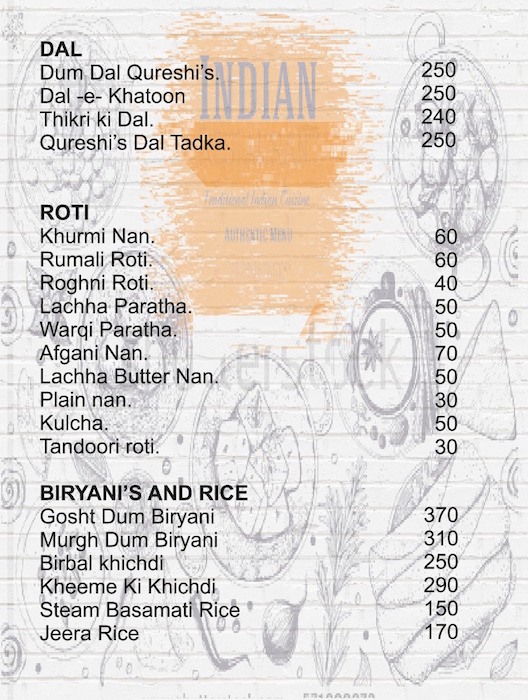 DAL
Dum Dal Qureshi's. 250
Dal -e- Khatoon 250
Thikri ki Dal. 240
Qureshi's Dal Tadka. 250
INDIAN
Traditional Indian Cuisine
AUTHENTIC MENU
ROTI
Khurmi Nan. 60
Rumali Roti. 60
Roghni Roti. 40
Lachha Paratha. 50
Warqi Paratha. 50
Afgani Nan. 70
Lachha Butter Nan. 50
Plain nan. 30
Kulcha. 50
Tandoori roti. 30
BIRYANI'S AND RICE
Gosht Dum Biryani 370
Murgh Dum Biryani 310
Birbal khichdi 250
Kheeme Ki Khichdi 290
Steam Basamati Rice 150
Jeera Rice 170